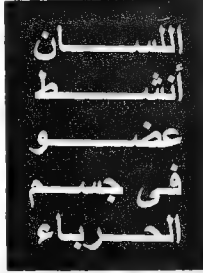 اللسان
أنشط
عضو
فى جسم
الحرباء